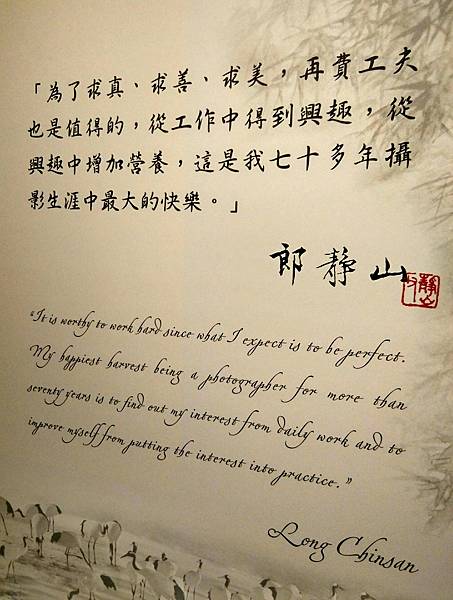 「為了求真、求善、求美，再費工夫
也是值得的，從工作中得到興趣，從
興趣中增加營養，這是我七十多年攝
影生涯中最大的快樂。」
郎靜山
“It is worthy to work hard since what I expect is to be perfect.
My happiest harvest being a photographer for more than
seventy years is to find out my interest from daily work and to
improve myself from putting the interest into practice.”
Long Chinsan